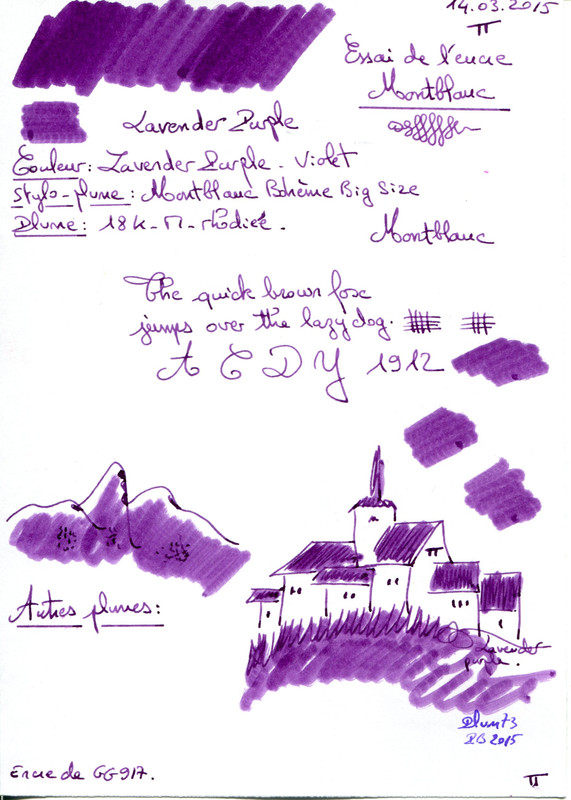 14.03.2015
Essai de l'encre
Montblanc
Lavender Purple
Couleur: Lavender Purple - Violet
Stylo-plume: Montblanc Bohème Big Size
Plume: 18k-M-rhodiée.
Montblanc
The quick brown fox
jumps over the lazy dog.
A C D Y 1912
Autres plumes:
Lavender
purple.
Plum73
2015
Encre de GG917.